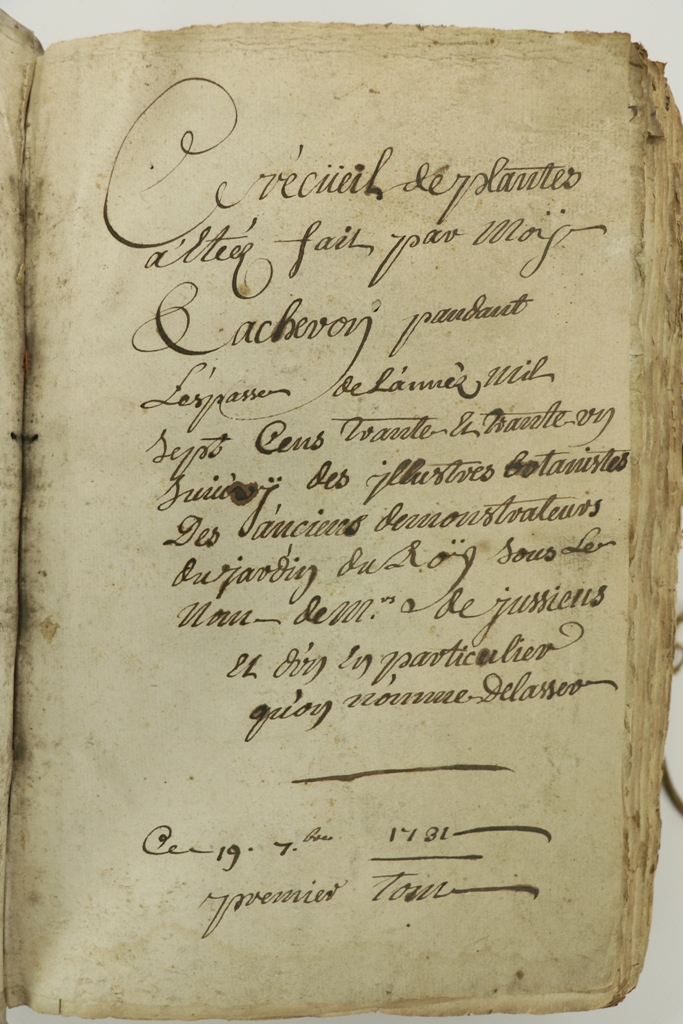 Récüeil de plantes
fait par Moÿ
Lachevon pandant
L'éspasse de L'année Mil
sept Cens trante Et trante un
Suiuvy des jllustres botanistes
Des ánciens demonstrateurs
du jardin du Roÿ sous Le
Nom de M.rs de jussieus
Et d'un En particulier
qu'on nómme Delasser
Ce 19. 7.bre 1731
premier Tome